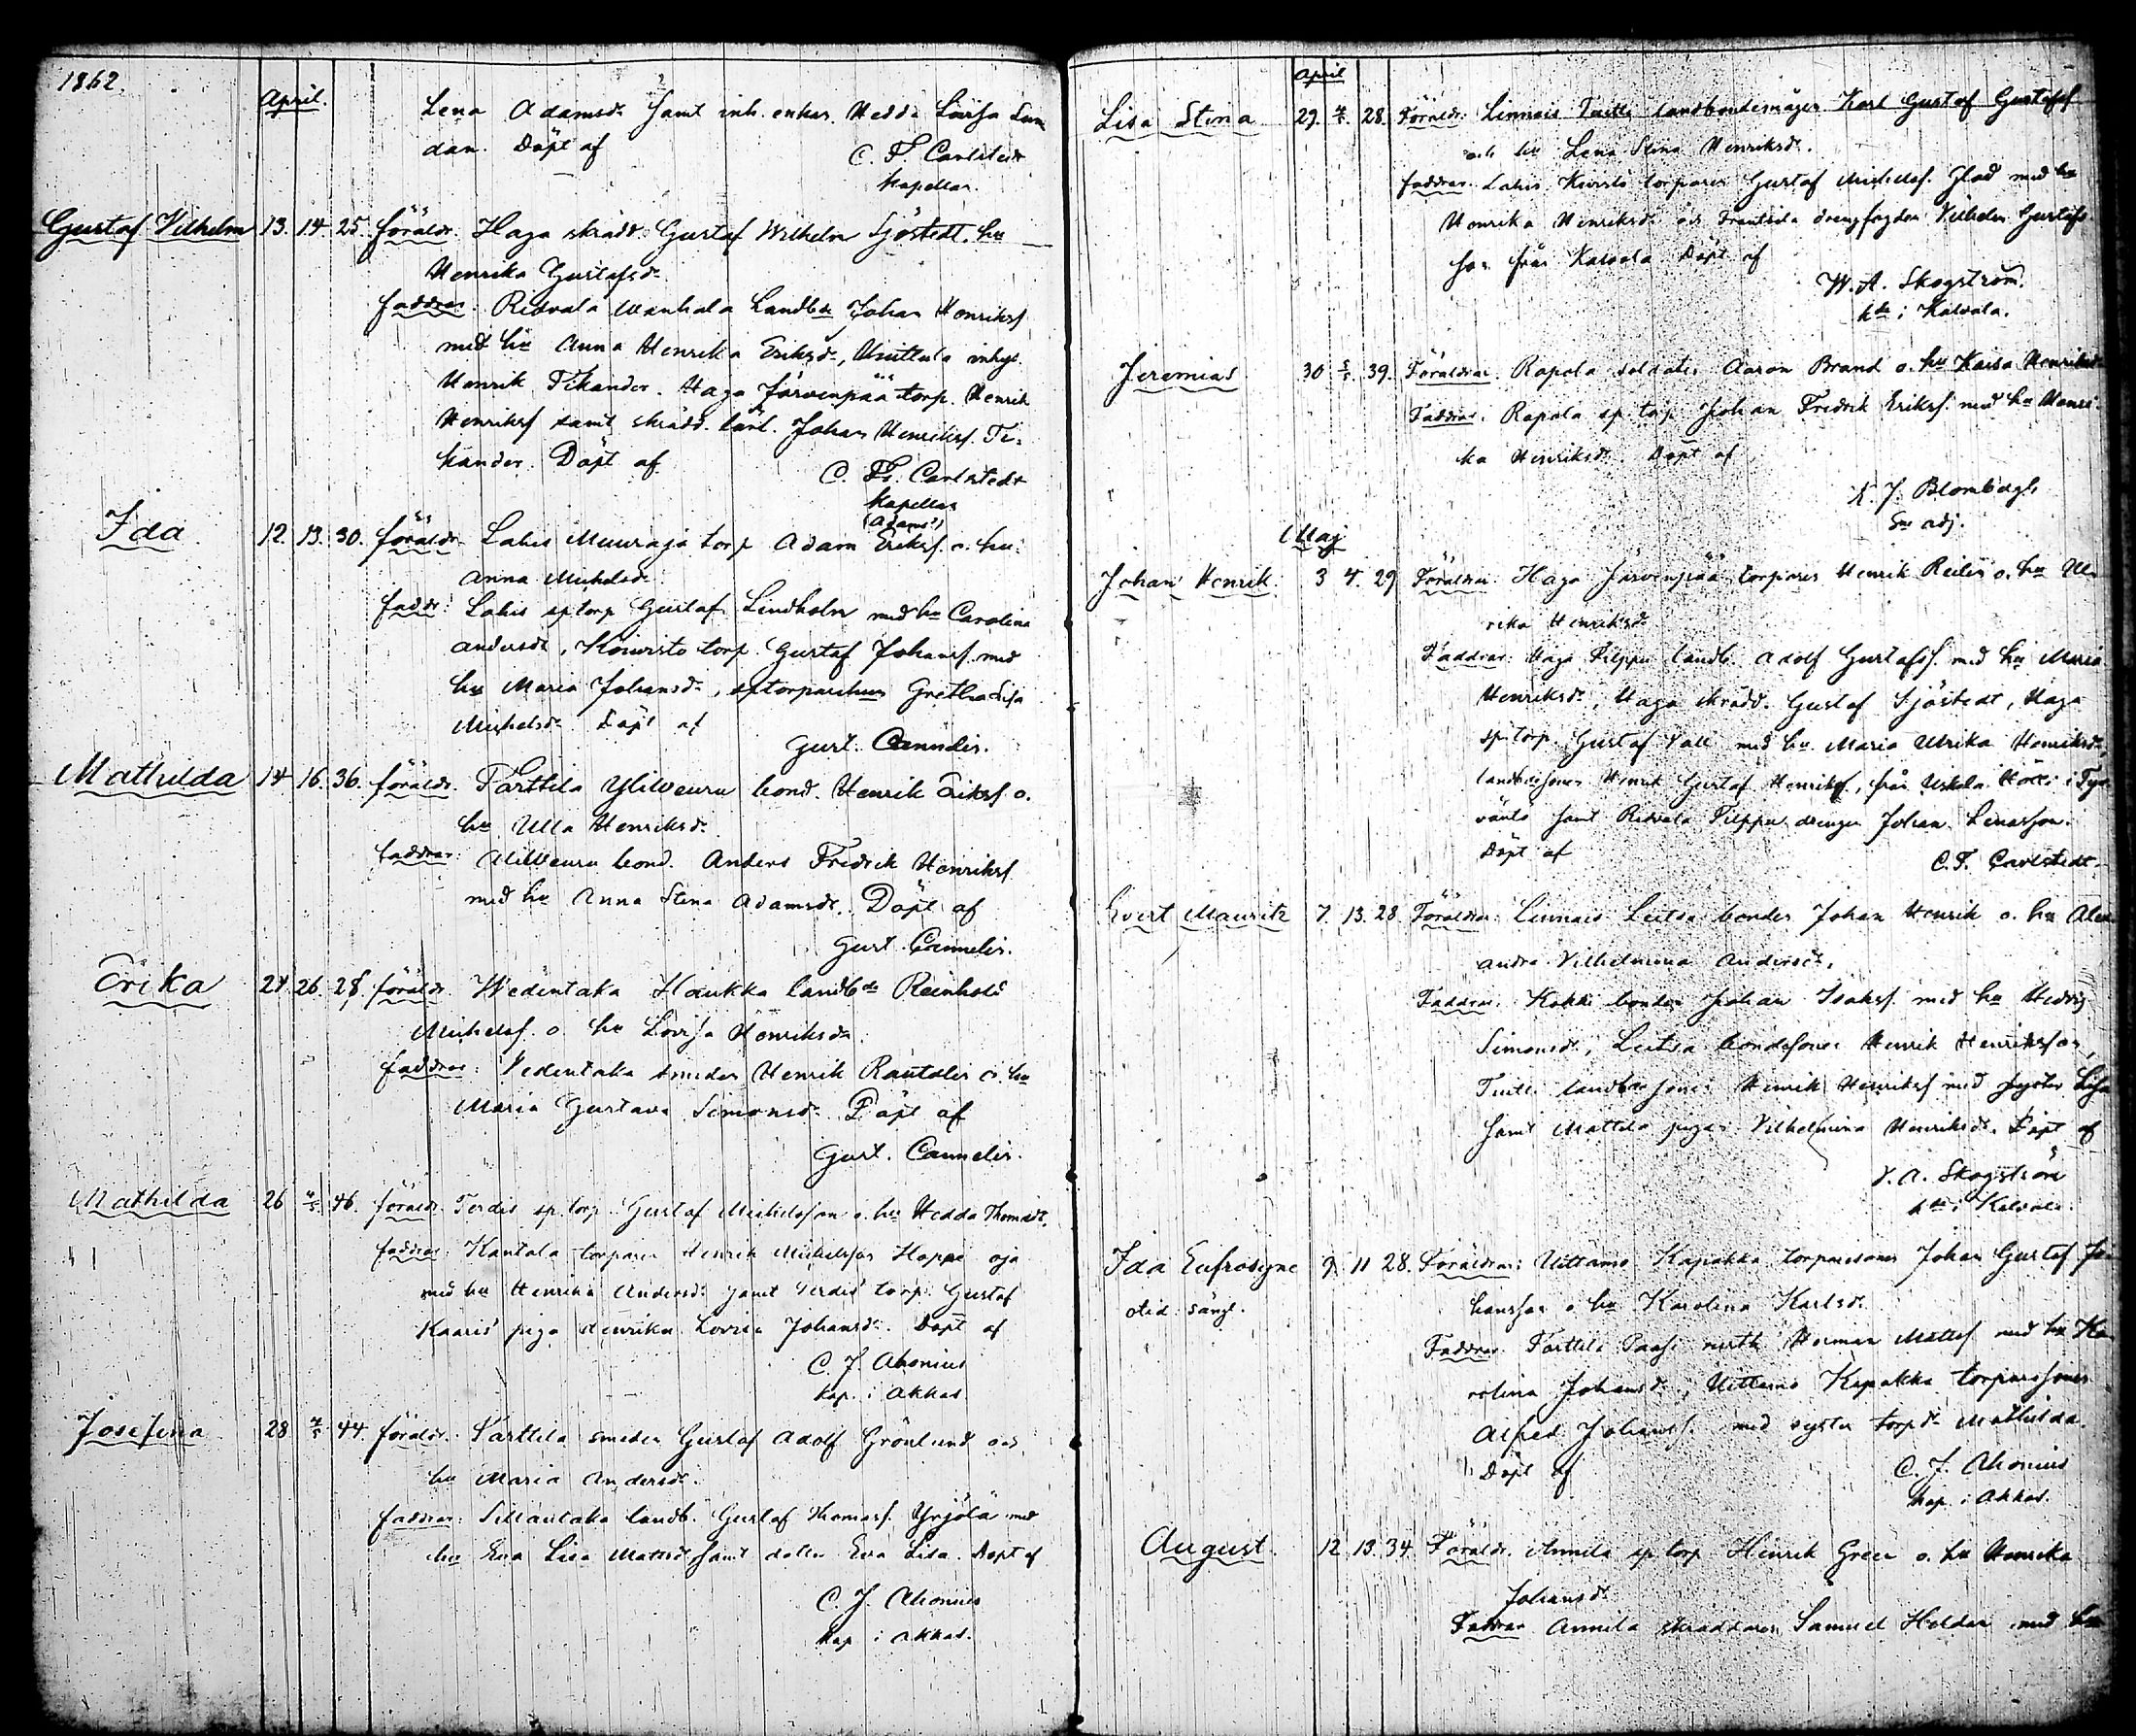 1862.
April.
Lena Adamsdr samt inh. enkan Hedda Lovisa Sun
dan. Döpt af
C. F. Carlstedt
kapellan.
Gustaf Vilhelm 13. 14. 25. föräldr. Haga skrädd. Gustaf Wilhelm Sjöstedt, hu
Henrika Gustafsdr
faddrar. Ridvala Wanhala Landbde Johan Henriksf
med hu Anna Henrika Eriksdr, Huittula inhys.
Henrik Tikander. Haga Järvenpää torp. Henrik
Henriksf samt skrädd. lärl. Johan Henriksf. Ti-
kander. Döpt af
C. F. Carlstedt
kapellan
(Adams?)
Ida 12. 13. 30. föräldr. Lahis Muuraja torp Adam Eriksf. o. hu.
Anna Michelsdr
faddr: Lahis sptorp Gustaf Lindholm med hu Carolina
Andersdr, Koivisto torp. Gustaf Johansf. med
hu Maria Johansdr, sptorparehus Gretha Lisa
Michelsdr Döpt af
Gust. Cannelin.
Mathilda 14 16. 36. föräldr. Parttila Yliveuru bond. Henrik Eriksf o.
hu Ulla Henriksdr
faddrar: Aliveuru bond. Anders Fredrik Henriksf
med hu Anna Stina Adamsdr. Döpt af
Gust. Cannelin.
Erika 24. 26. 28. föräldr. Wedentaka Haukka landbde Reinhold
Michelsf. o. hu Lovisa Henriksdr
faddrar: Vedentaka smeden Henrik Rautelin o. hu
Maria Gustava Simonsdr Döpt af
Gust. Cannelin.
Mathilda 26 4/5 46. föräldr. Terdis sp. torp. Gustaf Michelsson o. hu Hedda Thomasdr.
faddrar: Kantala torparen Henrik Michelsson Hoppe oja
med hu Henrika Andersdr samt Terdis torp. Gustaf
Kaaris piga Henrika Lovisa Johansdr. Döpt af
C. J. Ahonius
kap. i Akkas.
Josefina 28 4/5 44. föräldr. Parttila smeden Gustaf Adolf Grönlund och
hu Maria Andersdr.
faddrar: Sillantaka landb. Gustaf Thomasf. Yrjölä med
hu Eva Lisa Mattsdr samt dotter Eva Lisa. Döpt af
C. J. Ahonius
kap. i Akkas.
April
Lisa Stina 29. 4/5. 28. Föräldr. Linnais Tuitti landbondemågen Karl Gustaf Gustafsf
och hu Lena Stina Henriksdr.
faddrar. Lahis Koivisto torparen Gustaf Michelsf. Glad med hu
Henrika Henriksdr och Frantsila drengfogden Vilhelm Gustafs-
son från Kalvola. Döpt af
W. A. Skogström.
kde i Kalvola.
Jeremias 30 5/5. 39. Föräldrar. Rapola soldaten Aaron Brand o. hu Kaisa Henriksdr
Faddrar. Rapola sp. torp. Johan Fredrik Eriksf. med hu Henri-
ka Henriksdr. Döpt af
K. J. Blombergh,
sn adj.
Maj
Johan Henrik. 3 4. 29 Föräldrar Haga Järvenpää torparen Henrik Reilin o. hu Ul-
rika Henriksdr
Faddrar: Haga Filppu landb. Adolf Gustafsf. med hu Maria
Henriksdr, Haga skrädd. Gustaf Sjöstedt, Haga
sp. torp. Gustaf Vall med hu Maria Ulrika Henriksdr,
landbdesonen Henrik Gustaf Henriksf., från Uskola Hölli i Tyr-
väntö samt Ridvala Filppu drengen Johan Lenasson.
Döpt af
C. F. Carlstedt.
Evert Mauritz 7. 13. 28. Föräldrar. Linnais Leitsa bonden Johan Henrik o. hu Alex-
andra Vilhelmina Andersdr.
Faddrar. Kokki bonden Johan Isaksf. med hu Hedvig
Simonsdr, Leitsa bondesonen Henrik Henriksson,
Tuitti landbde sonen Henrik Henriksf med syster Lisa
samt Mattila pigan Vilhelmina Henriksdr. Döpt af
V. A. Skogström
kde i Kalvola.
Ida Eufrosyne 9. 11 28. Föräldrar: Uittamo Kapakka torparesonen Johan Gustaf Jo-
hansson o hu Karolina Karlsdr
Faddrar Parttila Paasi Herman Mattsf med hu Ka-
rolina Johansdr, Uittamo Kapakka torparesonen
Alfred Johansf. med syster torpdr Mathilda.
Döpt af
C. J. Ahonius
kap. i Akkas.
August. 12. 13. 34. Föräldr. Annila sp torp Henrik Green o. hu Henrika
Johansdr
Faddrar Annila skräddaren Samuel Holder med hu